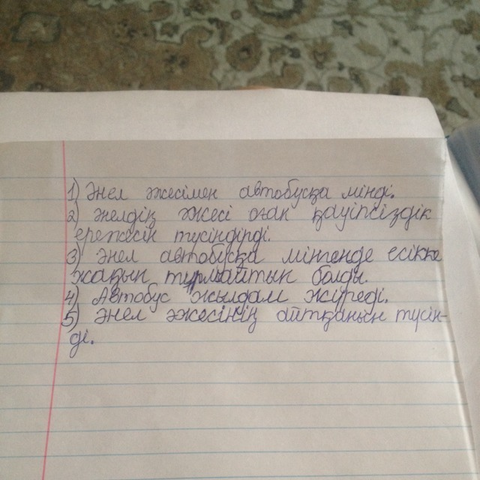 1) Әнел әжесімен автобусқа мінді.
2) Әнелдің әжесі оған қауіпсіздік
ережесін түсіндірді.
3) Әнел автобусқа мінгенде есікке
жақын тұрмайтын болды.
4) Автобус жылдам жүреді.
5) Әнел әжесінің айтқанын түсін-
ді.